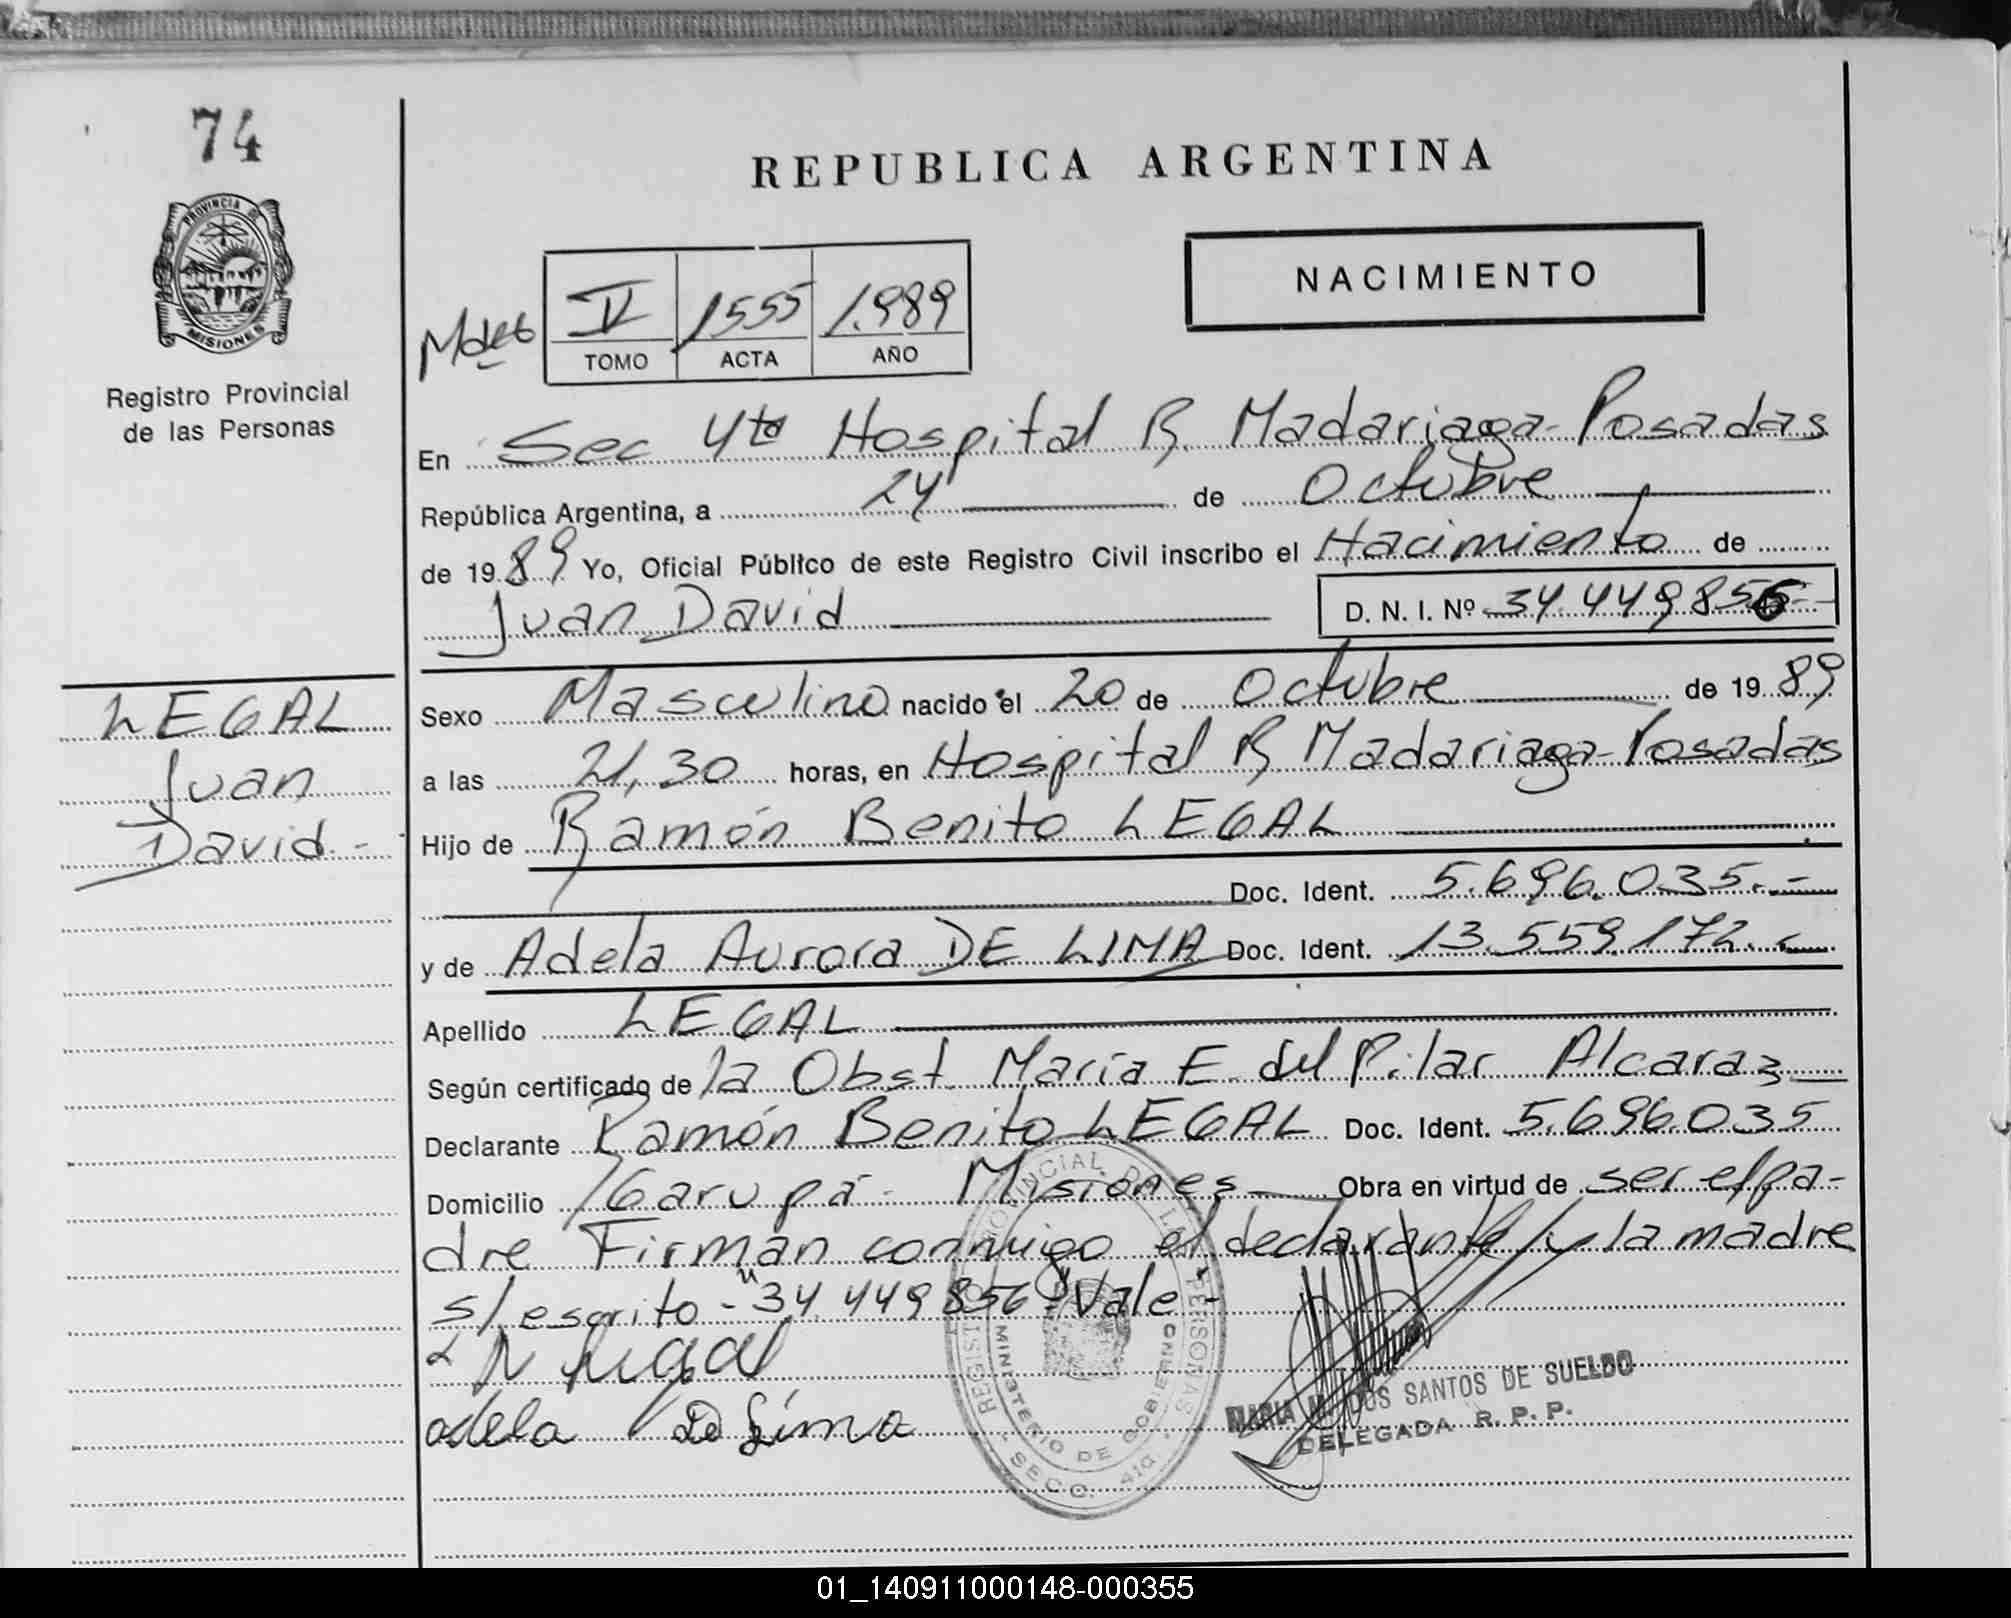 74
REPUBLICA ARGENTINA
PROVINCIA DE
MISIONES
Registro Provincial
de las Personas
NACIMIENTO
V 1555 1.989
TOMO ACTA AÑO
En Sec 4ta Hospital R. Madariaga - Posadas
República Argentina, a 24 de Octubre
de 1989 Yo, Oficial Público de este Registro Civil inscribo el Nacimiento de
Juan David D. N. I. Nº 34.449.856-
LEGAL
Juan
David -
Sexo Masculino nacido el 20 de Octubre de 1989
a las 21,30 horas, en Hospital R Madariaga - Posadas
Hijo de Ramón Benito LEGAL
Doc. Ident. 5.696.035.-
y de Adela Aurora DE LIMA Doc. Ident. 13.559.172.-
Apellido LEGAL
Según certificado de la Obst. María E. del Pilar Alcaraz
Declarante Ramón Benito LEGAL Doc. Ident. 5.696.035
Domicilio Garupá - Misiones Obra en virtud de ser el pa-
dre Firman conmigo el declarante y la madre
s/ escrito - "34.449.856" Vale -
adela De Lima
REGISTRO PROVINCIAL DE LAS PERSONAS
MINISTERIO DE GOBIERNO
SECC. 4ta.
MARIA M. DOS SANTOS DE SUELDO
DELEGADA R. P. P.
01_140911000148-000355